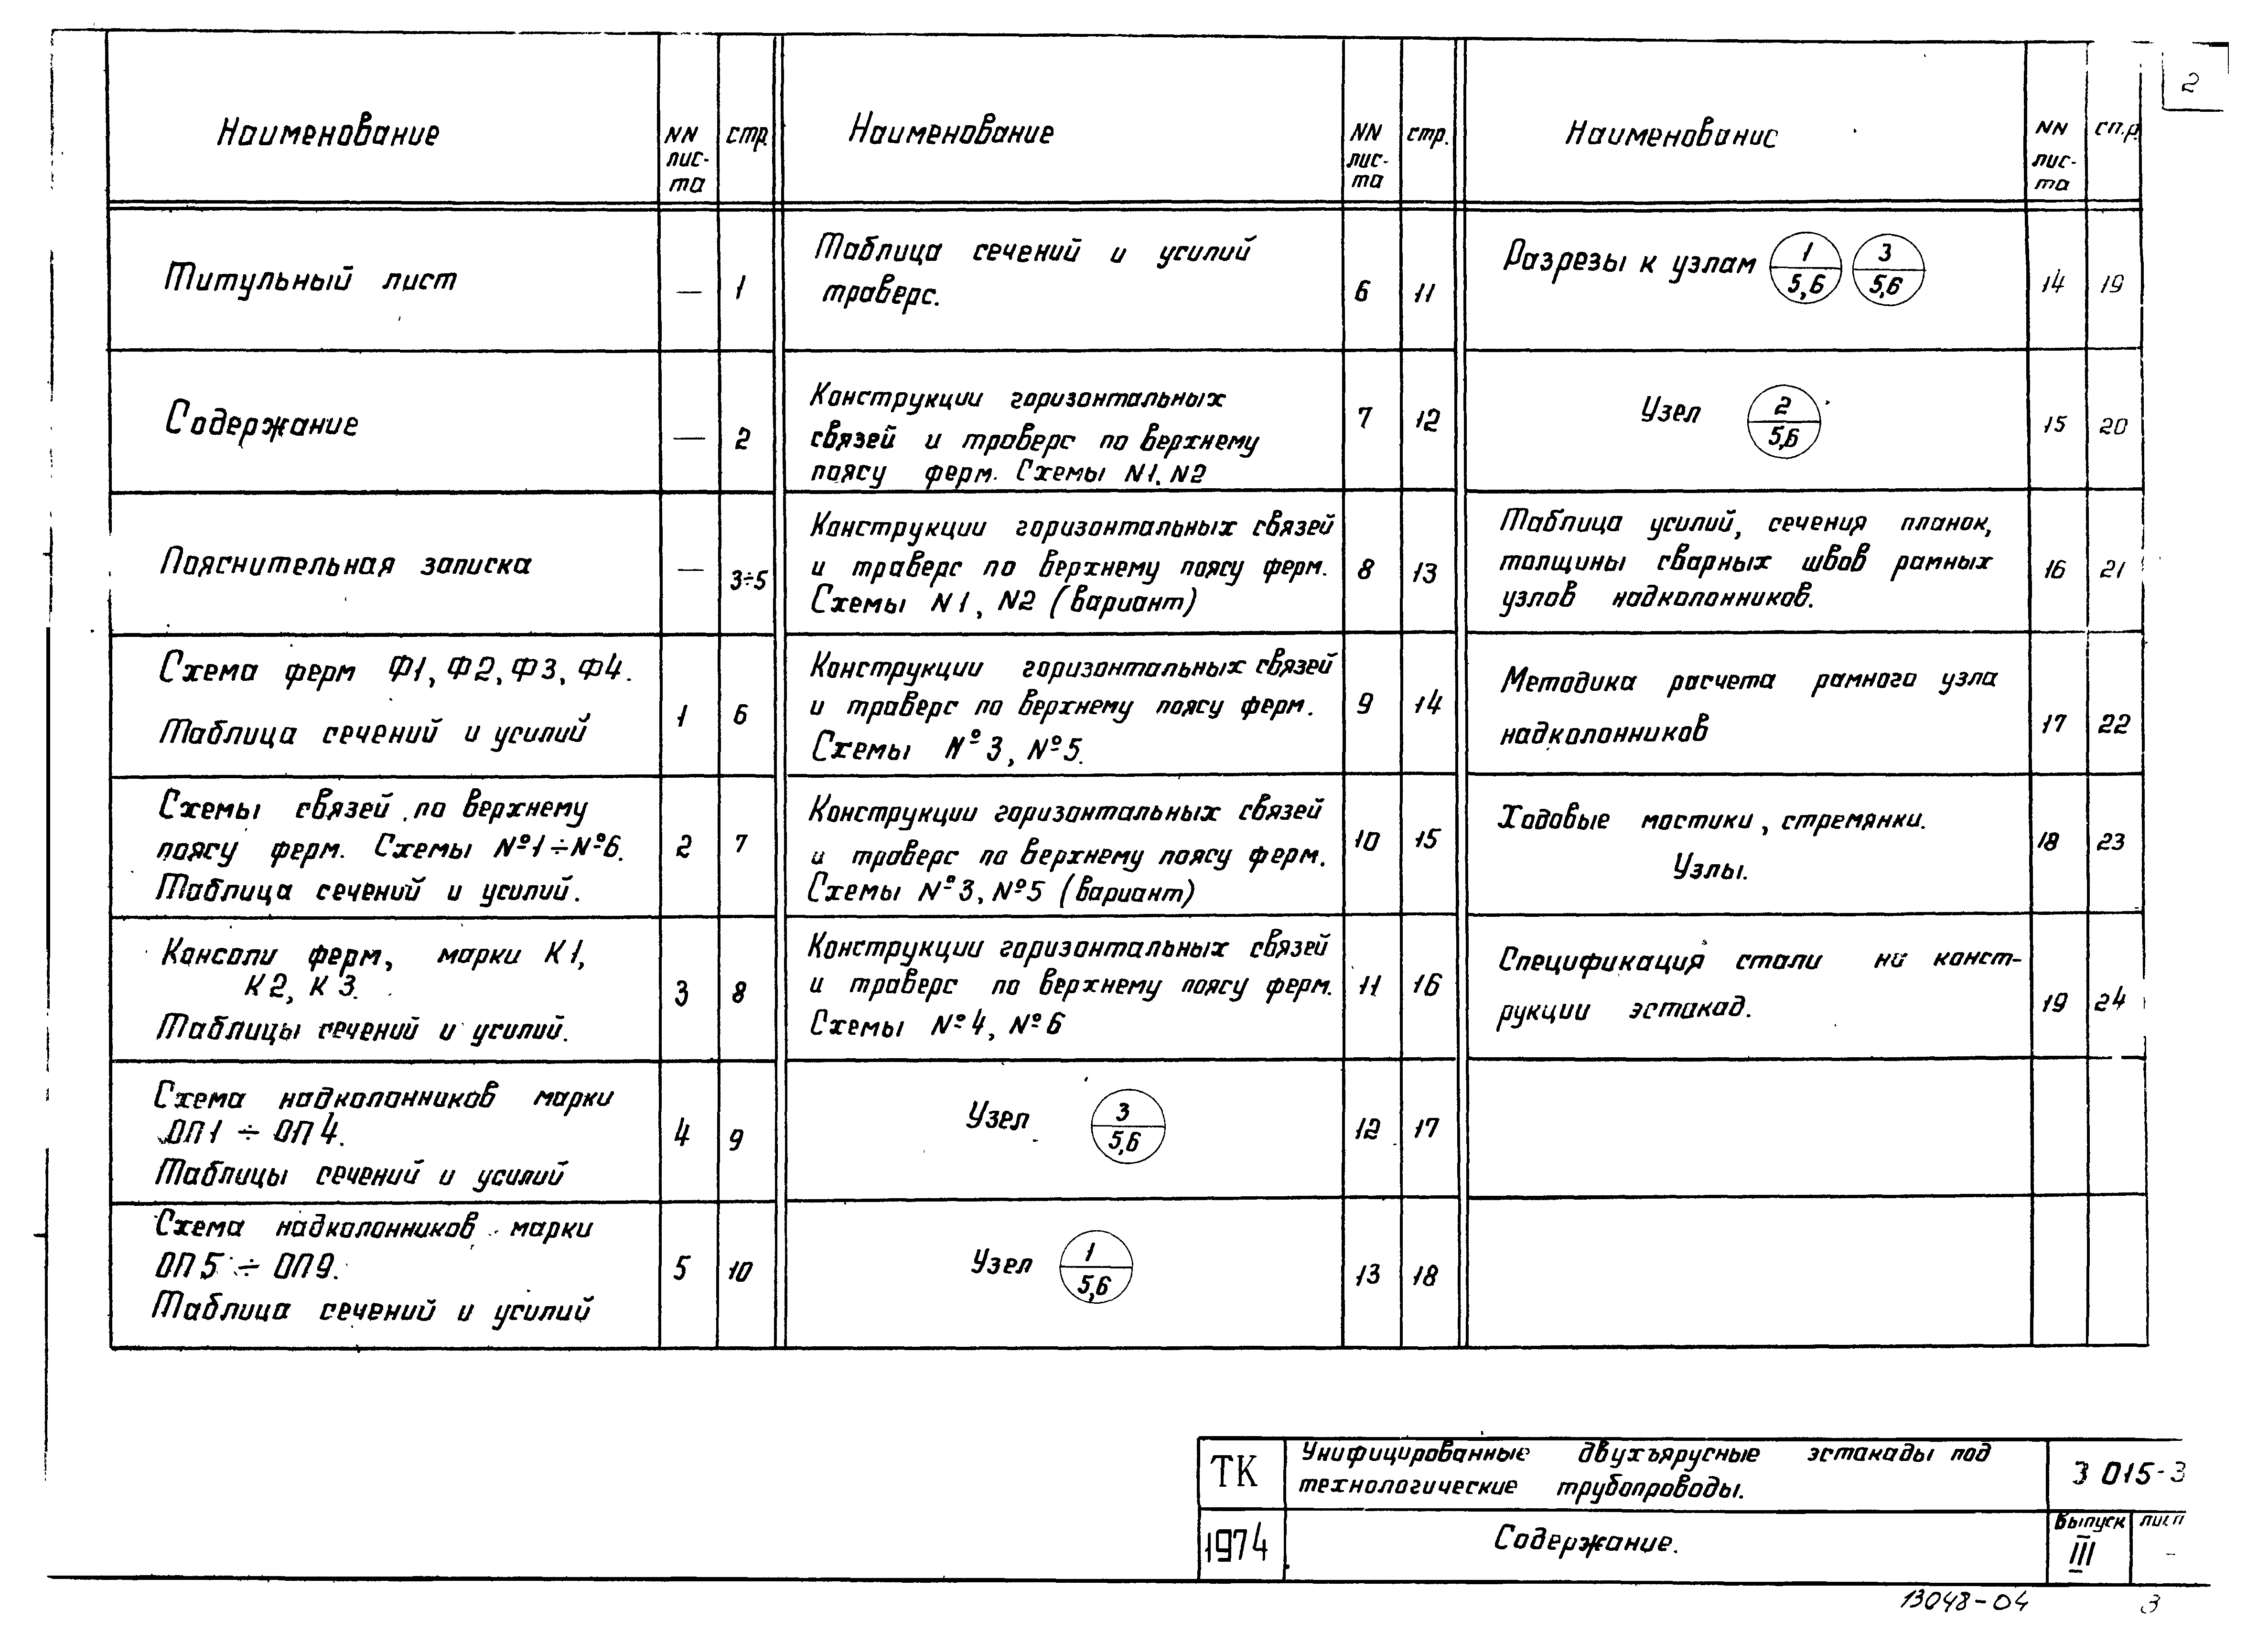 2
Наименование
NN
лис-
та
стр.
Титульный лист
—
1
Содержание
—
2
Пояснительная записка
—
3÷5
Схема ферм Ф1, Ф2, Ф3, Ф4.
Таблица сечений и усилий
1
6
Схемы связей по верхнему
поясу ферм. Схемы №1÷№6.
Таблица сечений и усилий.
2
7
Консоли ферм, марки К1,
К2, К3.
Таблицы сечений и усилий.
3
8
Схема надколонников марки
ОП1 ÷ ОП4.
Таблицы сечений и усилий
4
9
Схема надколонников марки
ОП5 ÷ ОП9.
Таблица сечений и усилий
5
10
Наименование
NN
лис-
та
стр.
Таблица сечений и усилий
траверс.
6
11
Конструкции горизонтальных
связей и траверс по верхнему
поясу ферм. Схемы N1, N2
7
12
Конструкции горизонтальных связей
и траверс по верхнему поясу ферм.
Схемы N1, N2 (вариант)
8
13
Конструкции горизонтальных связей
и траверс по верхнему поясу ферм.
Схемы №3, №5.
9
14
Конструкции горизонтальных связей
и траверс по верхнему поясу ферм.
Схемы №3, №5 (вариант)
10
15
Конструкции горизонтальных связей
и траверс по верхнему поясу ферм.
Схемы №4, №6
11
16
Узел 3
5,6
12
17
Узел 1
5,6
13
18
Наименование
NN
лис-
та
стр.
Разрезы к узлам 1 3
5,6 5,6
14
19
Узел 2
5,6
15
20
Таблица усилий, сечения планок,
толщины сварных швов рамных
узлов надколонников.
16
21
Методика расчета рамного узла
надколонников
17
22
Ходовые мостики, стремянки.
Узлы.
18
23
Спецификация стали на конст-
рукции эстакад.
19
24
ТК
Унифицированные двухъярусные эстакады под
технологические трубопроводы.
3 015-3
1974
Содержание.
Выпуск
III
лист
-
13048-04
3